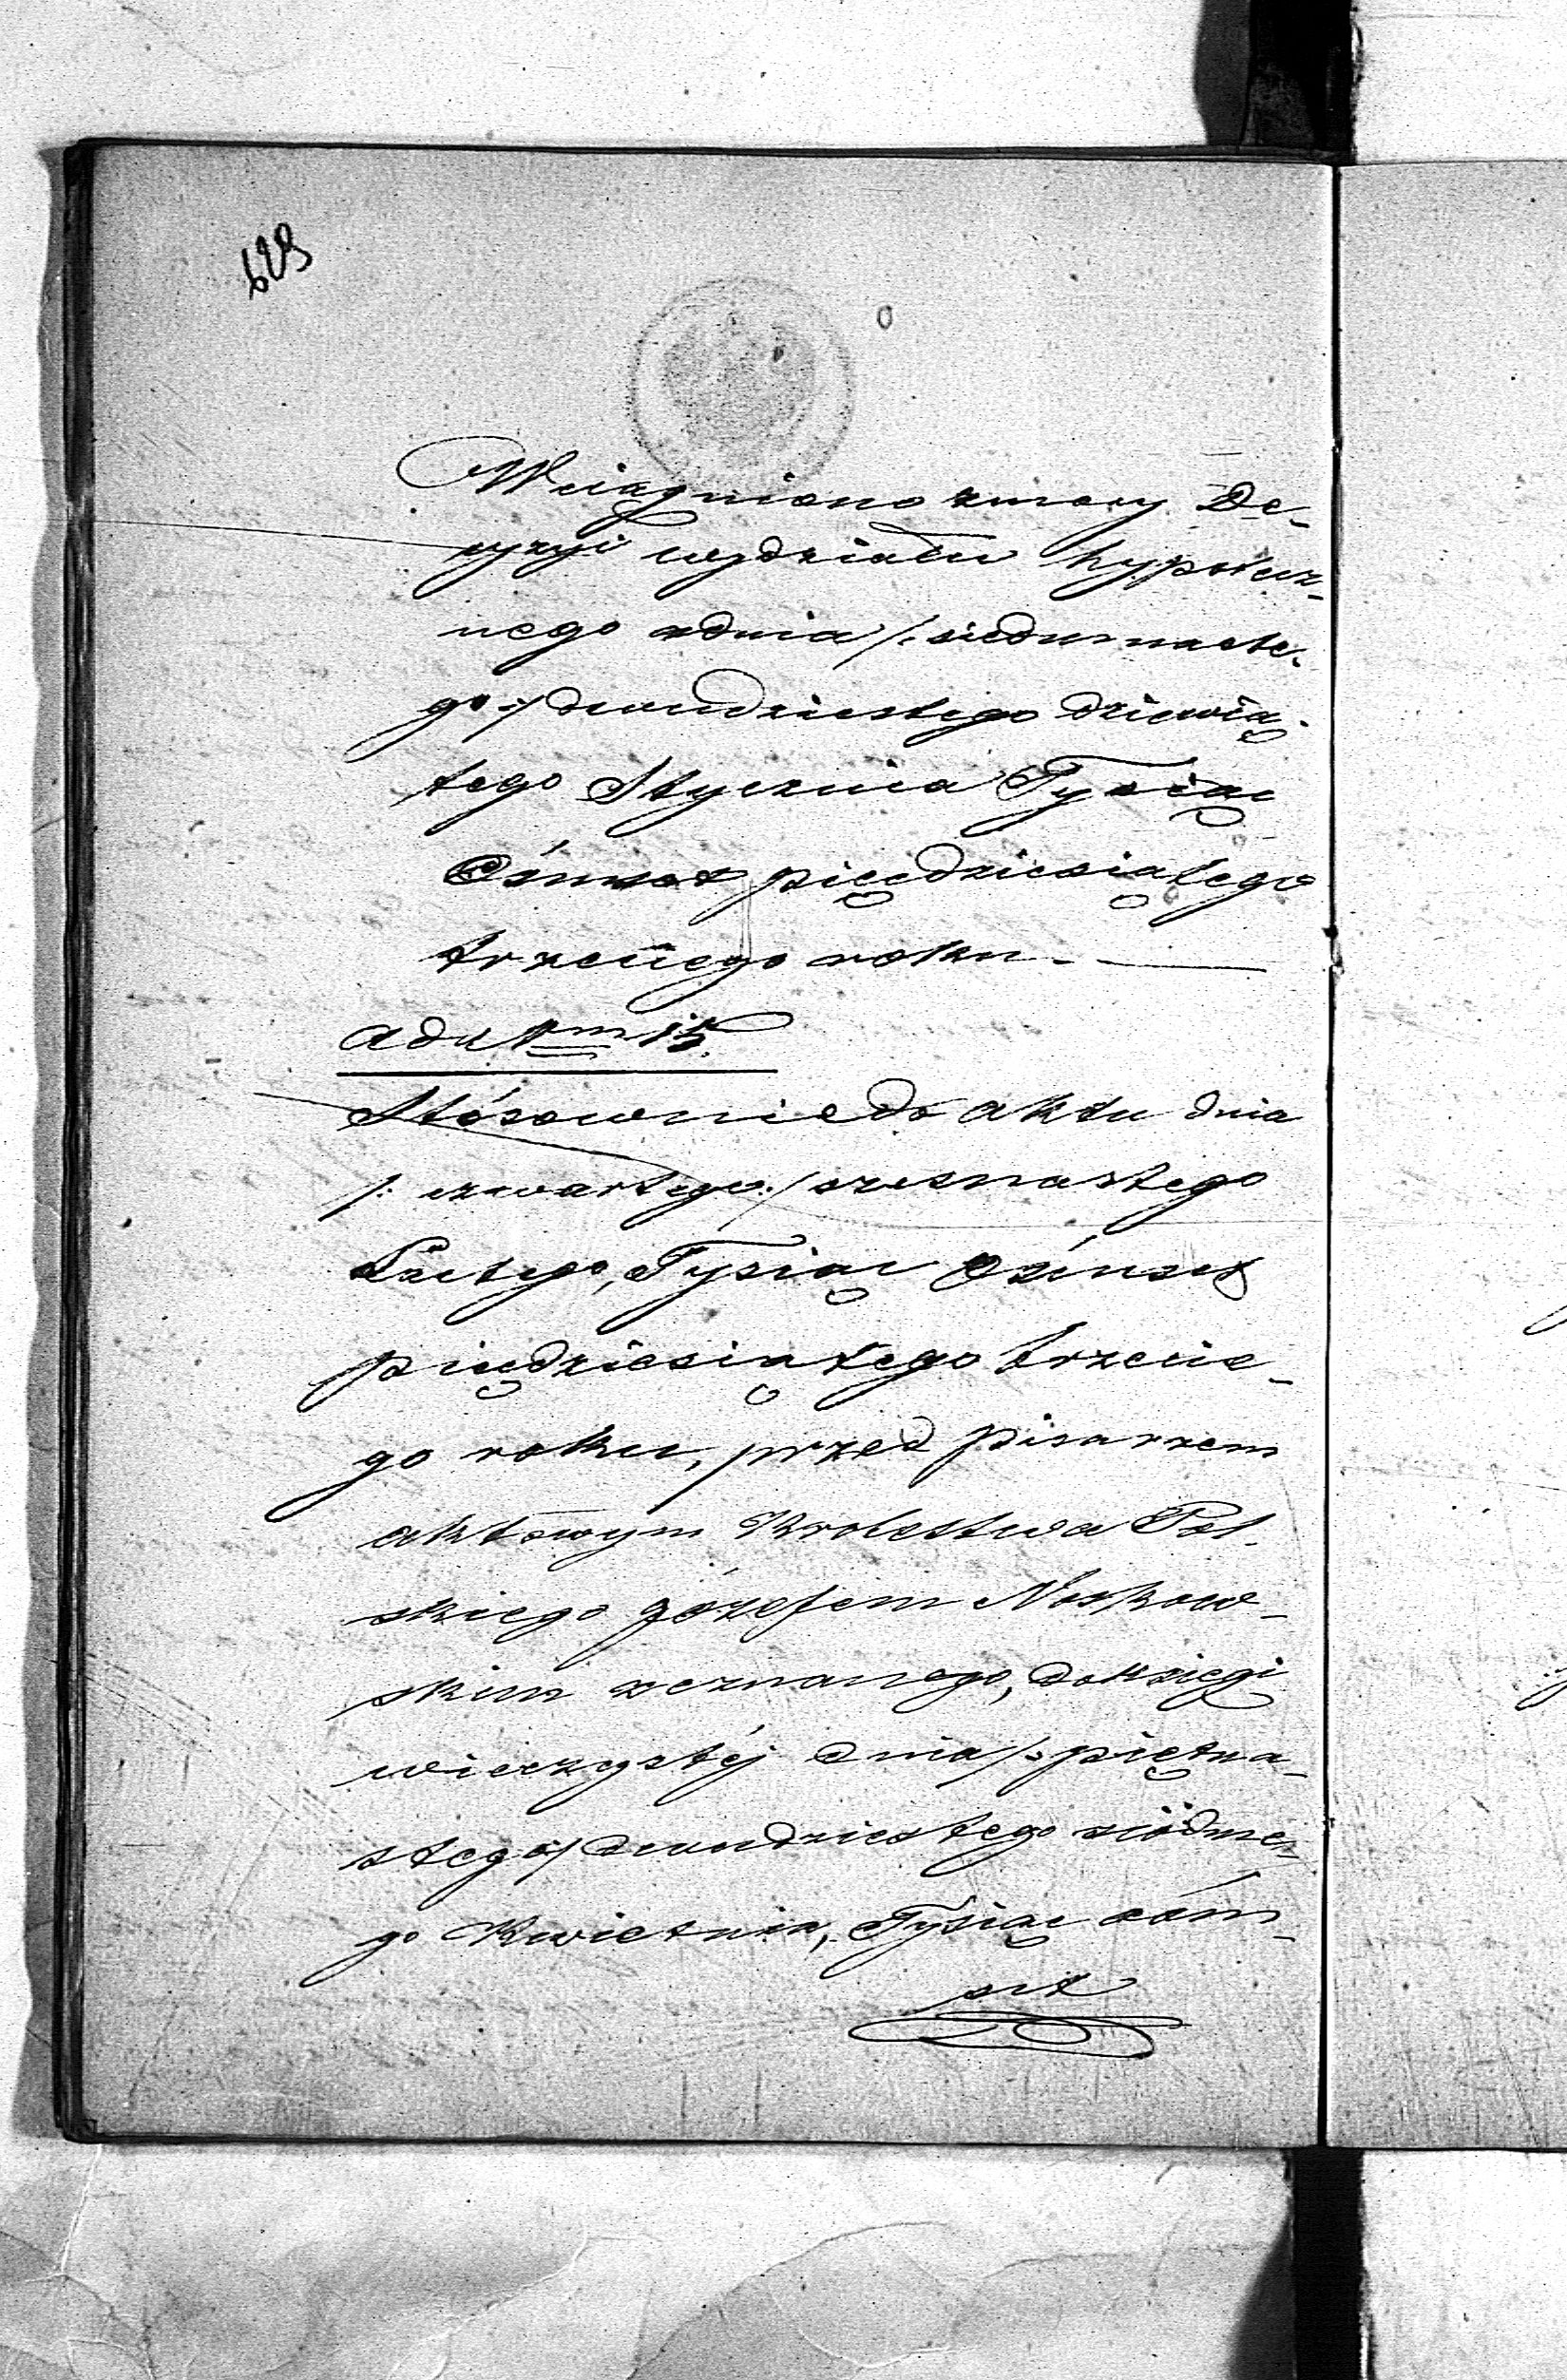 629
Wciągniono zmocy De-
cyzyi wydziału hypotecz-
nego zdnia /: siedmnaste-
go :/ dwudziestego dziewią-
tego Stycznia Tysiąc
Ośmset pięćdziesiątego
trzeciego roku. —
ad Num 15
Stósownie do aktu dnia
/: czwartego :/ szesnastego
Lutego, Tysiąc Ośmset
pięćdziesiątego trzecie-
go roku, przed pisarzem
aktowym Krolestwa Pol-
skiego Józefem Noskow-
skim zeznanego, do księgi
wieczystéj dnia /: piętna-
stego :/ dwudziestego siódme-
go Kwietnia, Tysiąc ośm-
set